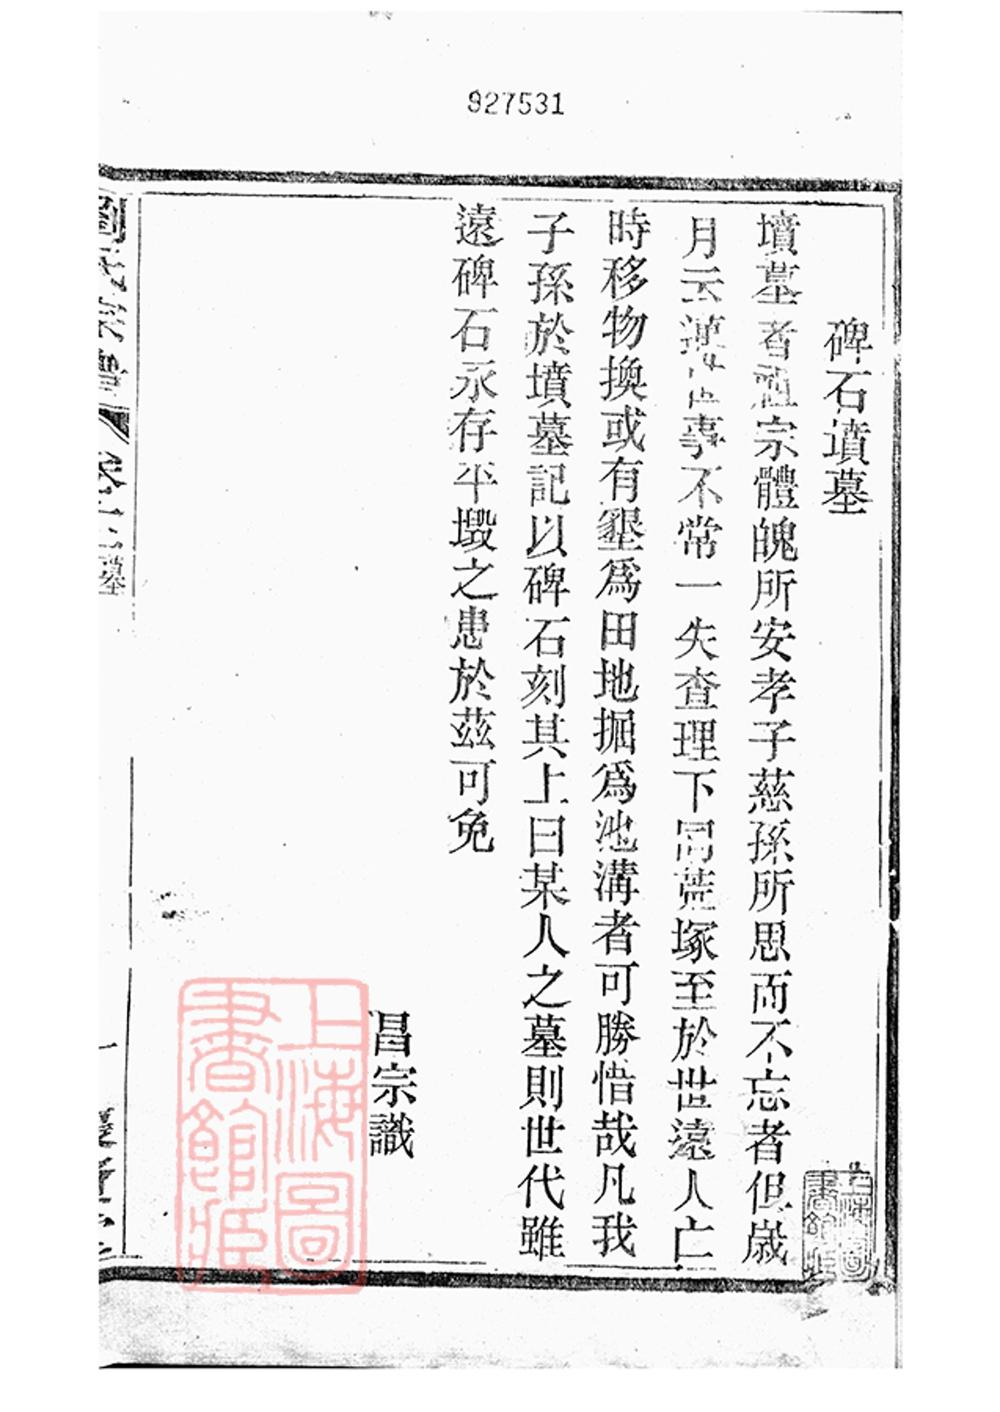 927531
碑石墳墓
墳墓者祖宗體魄所安孝子慈孫所思而不忘者但歲
月云遠世事不常一失查理下同荒塚至於世遠人亡
時移物換或有墾爲田地掘爲池溝者可勝惜哉凡我
子孫於墳墓記以碑石刻其上曰某人之墓則世代雖
遠碑石永存平毀之患於茲可免
昌宗識
劉氏宗譜
卷十二
墓
一
上海圖書館藏
上海圖書館藏